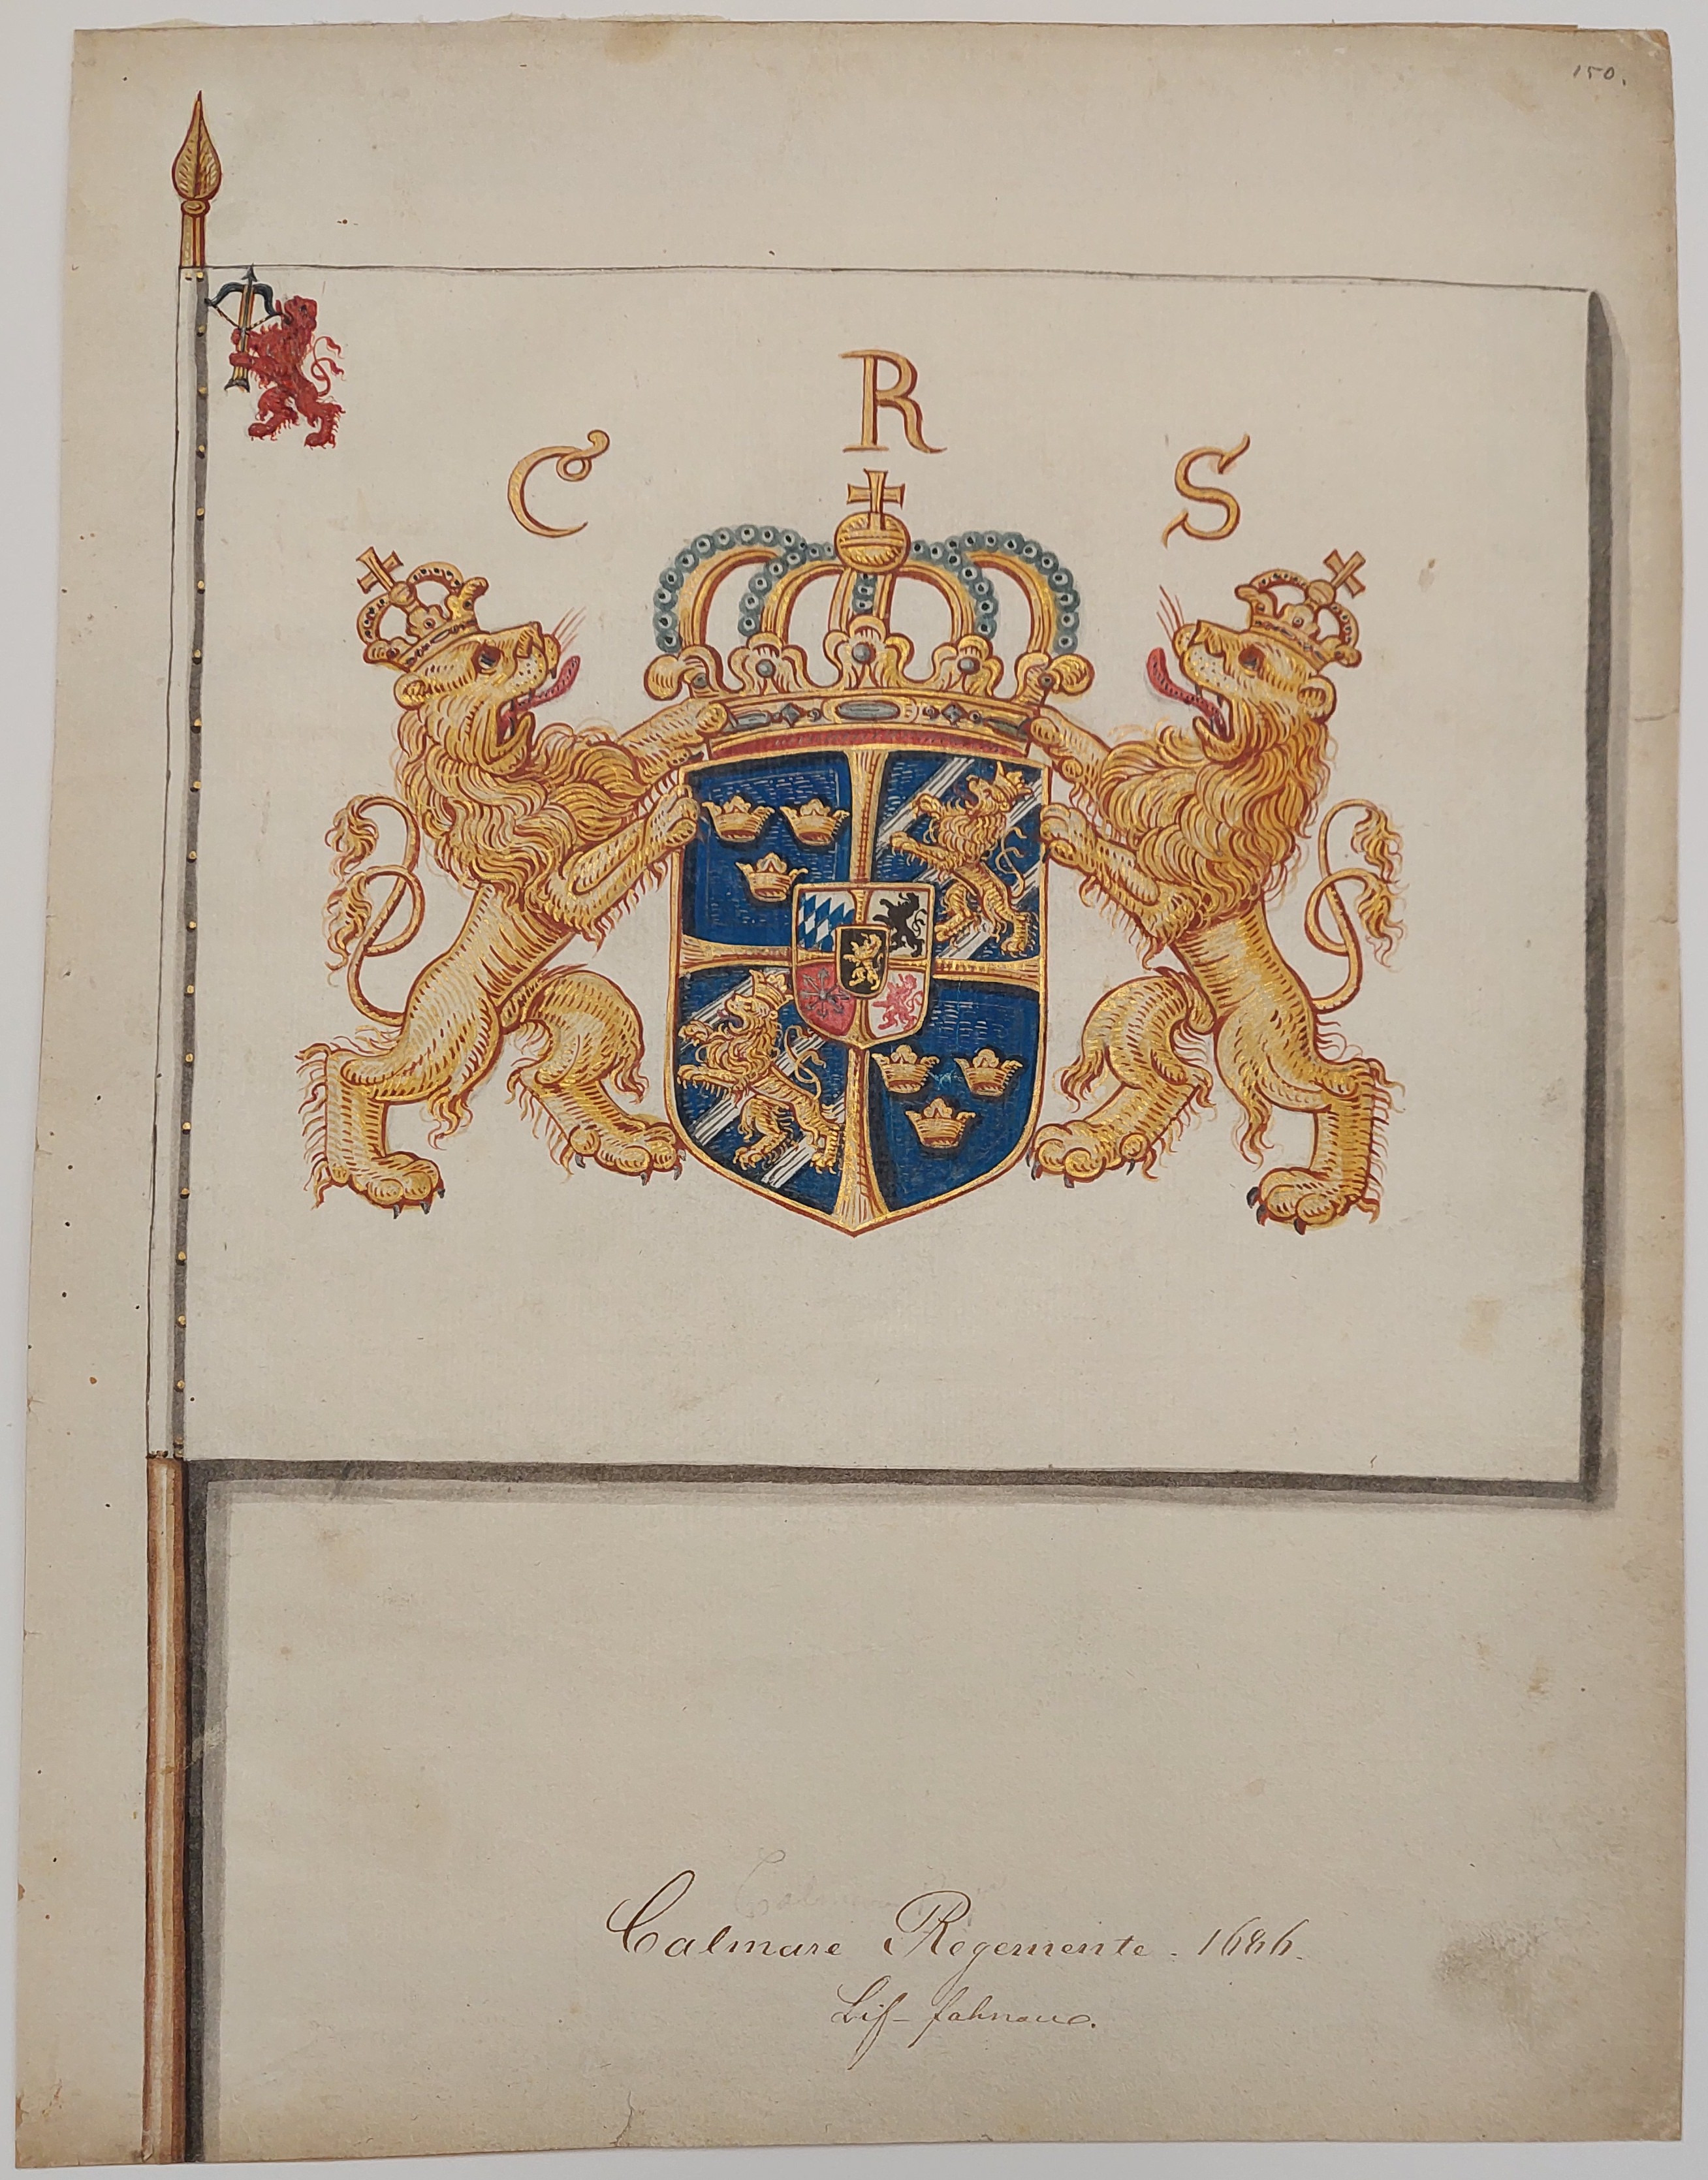 150.
C R S
Calmare Regemente. 1686.
Lif-fahnan.